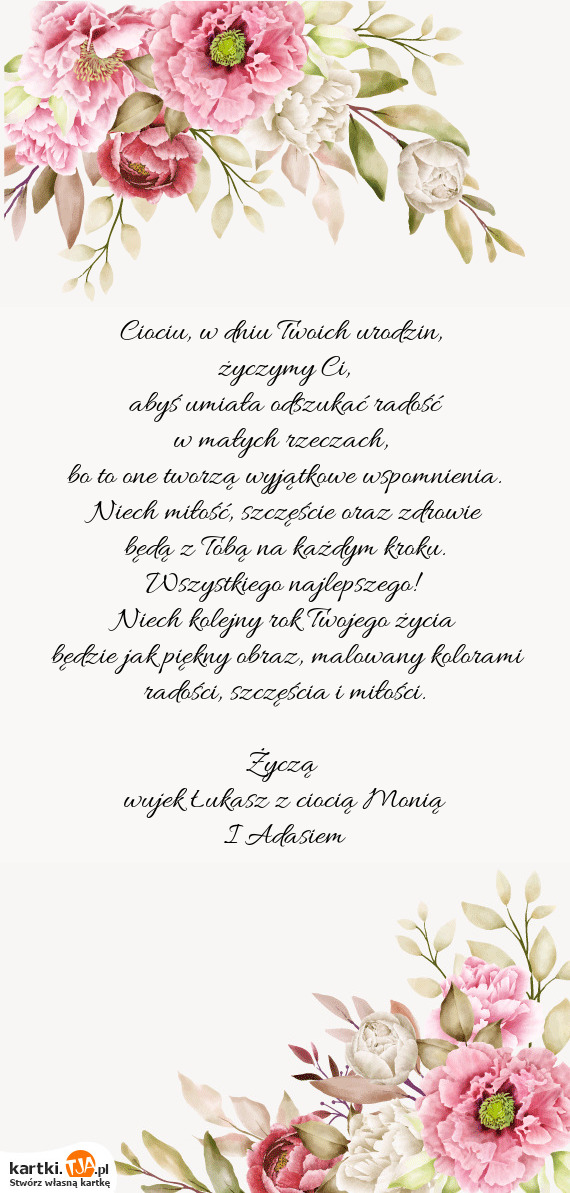 Ciociu, w dniu Twoich urodzin,
życzymy Ci,
abyś umiała odszukać radość
w małych rzeczach,
bo to one tworzą wyjątkowe wspomnienia.
Niech miłość, szczęście oraz zdrowie
będą z Tobą na każdym kroku.
Wszystkiego najlepszego!
Niech kolejny rok Twojego życia
będzie jak piękny obraz, malowany kolorami
radości, szczęścia i miłości.
Życzą
wujek Łukasz z ciocią Monią
I Adasiem
kartki.TJA.pl
Stwórz własną kartkę